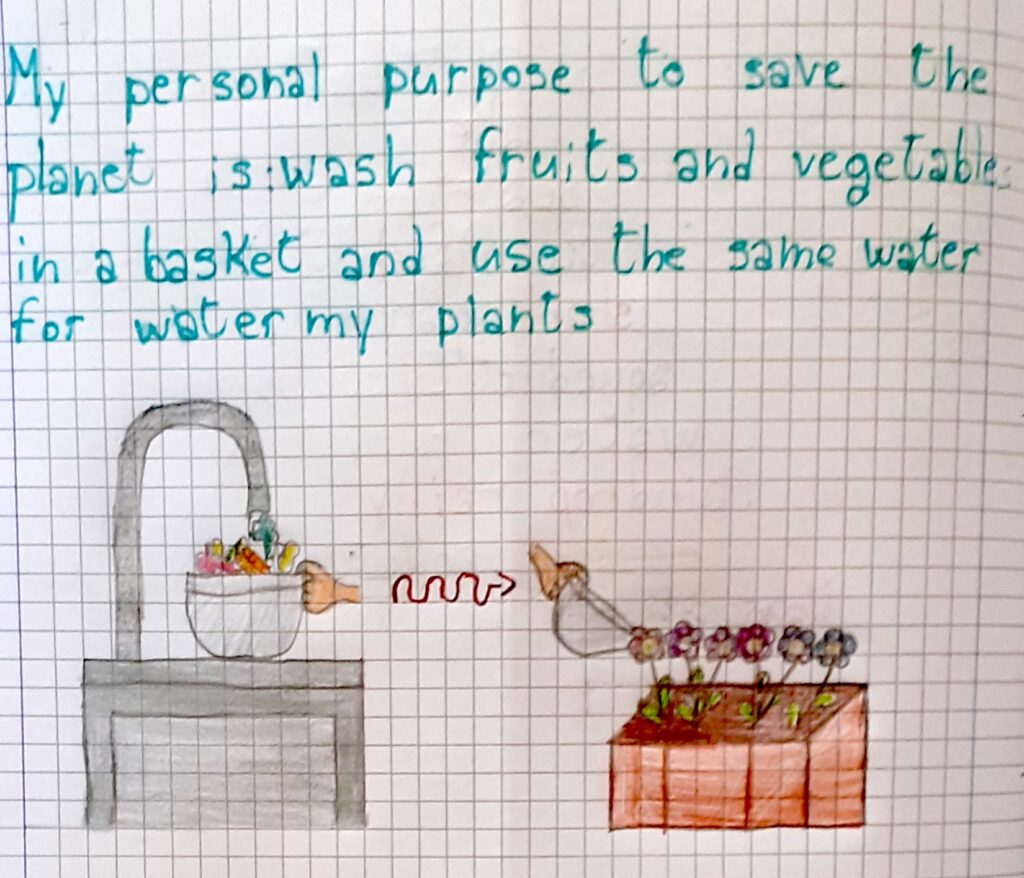 My personal purpose to save the
planet is: wash fruits and vegetables
in a basket and use the same water
for water my plants